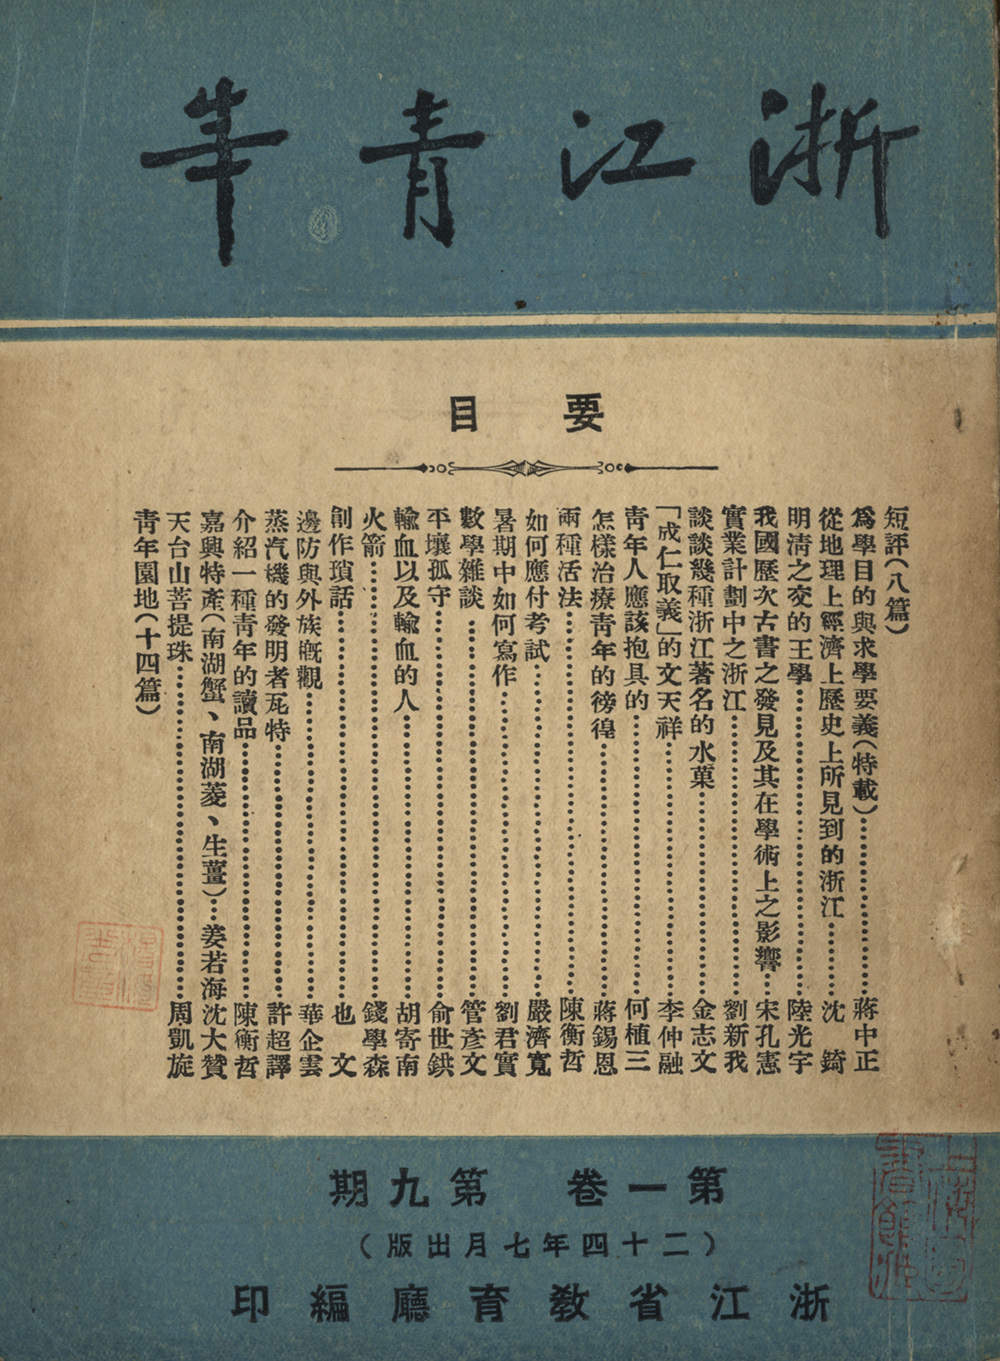 浙江青年
要目
短評(八篇)
為學目的與求學要義(特載)……蔣中正
從地理上經濟上歷史上所見到的浙江……沈錡
明清之交的王學……陸光宇
我國歷次古書之發見及其在學術上之影響……宋孔憲
實業計劃中之浙江……劉新我
談談幾種浙江著名的水菓……金志文
「成仁取義」的文天祥……李仲融
青年人應該抱具的……何植三
怎樣治療青年的徬徨……蔣錫恩
兩種活法……陳衡哲
如何應付考試……嚴濟寬
暑期中如何寫作……劉君實
數學雜談……管彥文
平壤孤守……俞世鉷
輸血以及輸血的人……胡寄南
火箭……錢學森
創作瑣話……也文
邊防與外族概觀……華企雲
蒸汽機的發明者瓦特……許超譯
介紹一種青年的讀品……陳衡哲
嘉興特產(南湖蟹、南湖菱、生薑)……姜若海沈大贊
天台山菩提珠……周凱旋
青年園地(十四篇)
第一卷 第九期
(二十四年七月出版)
浙江省教育廳編印